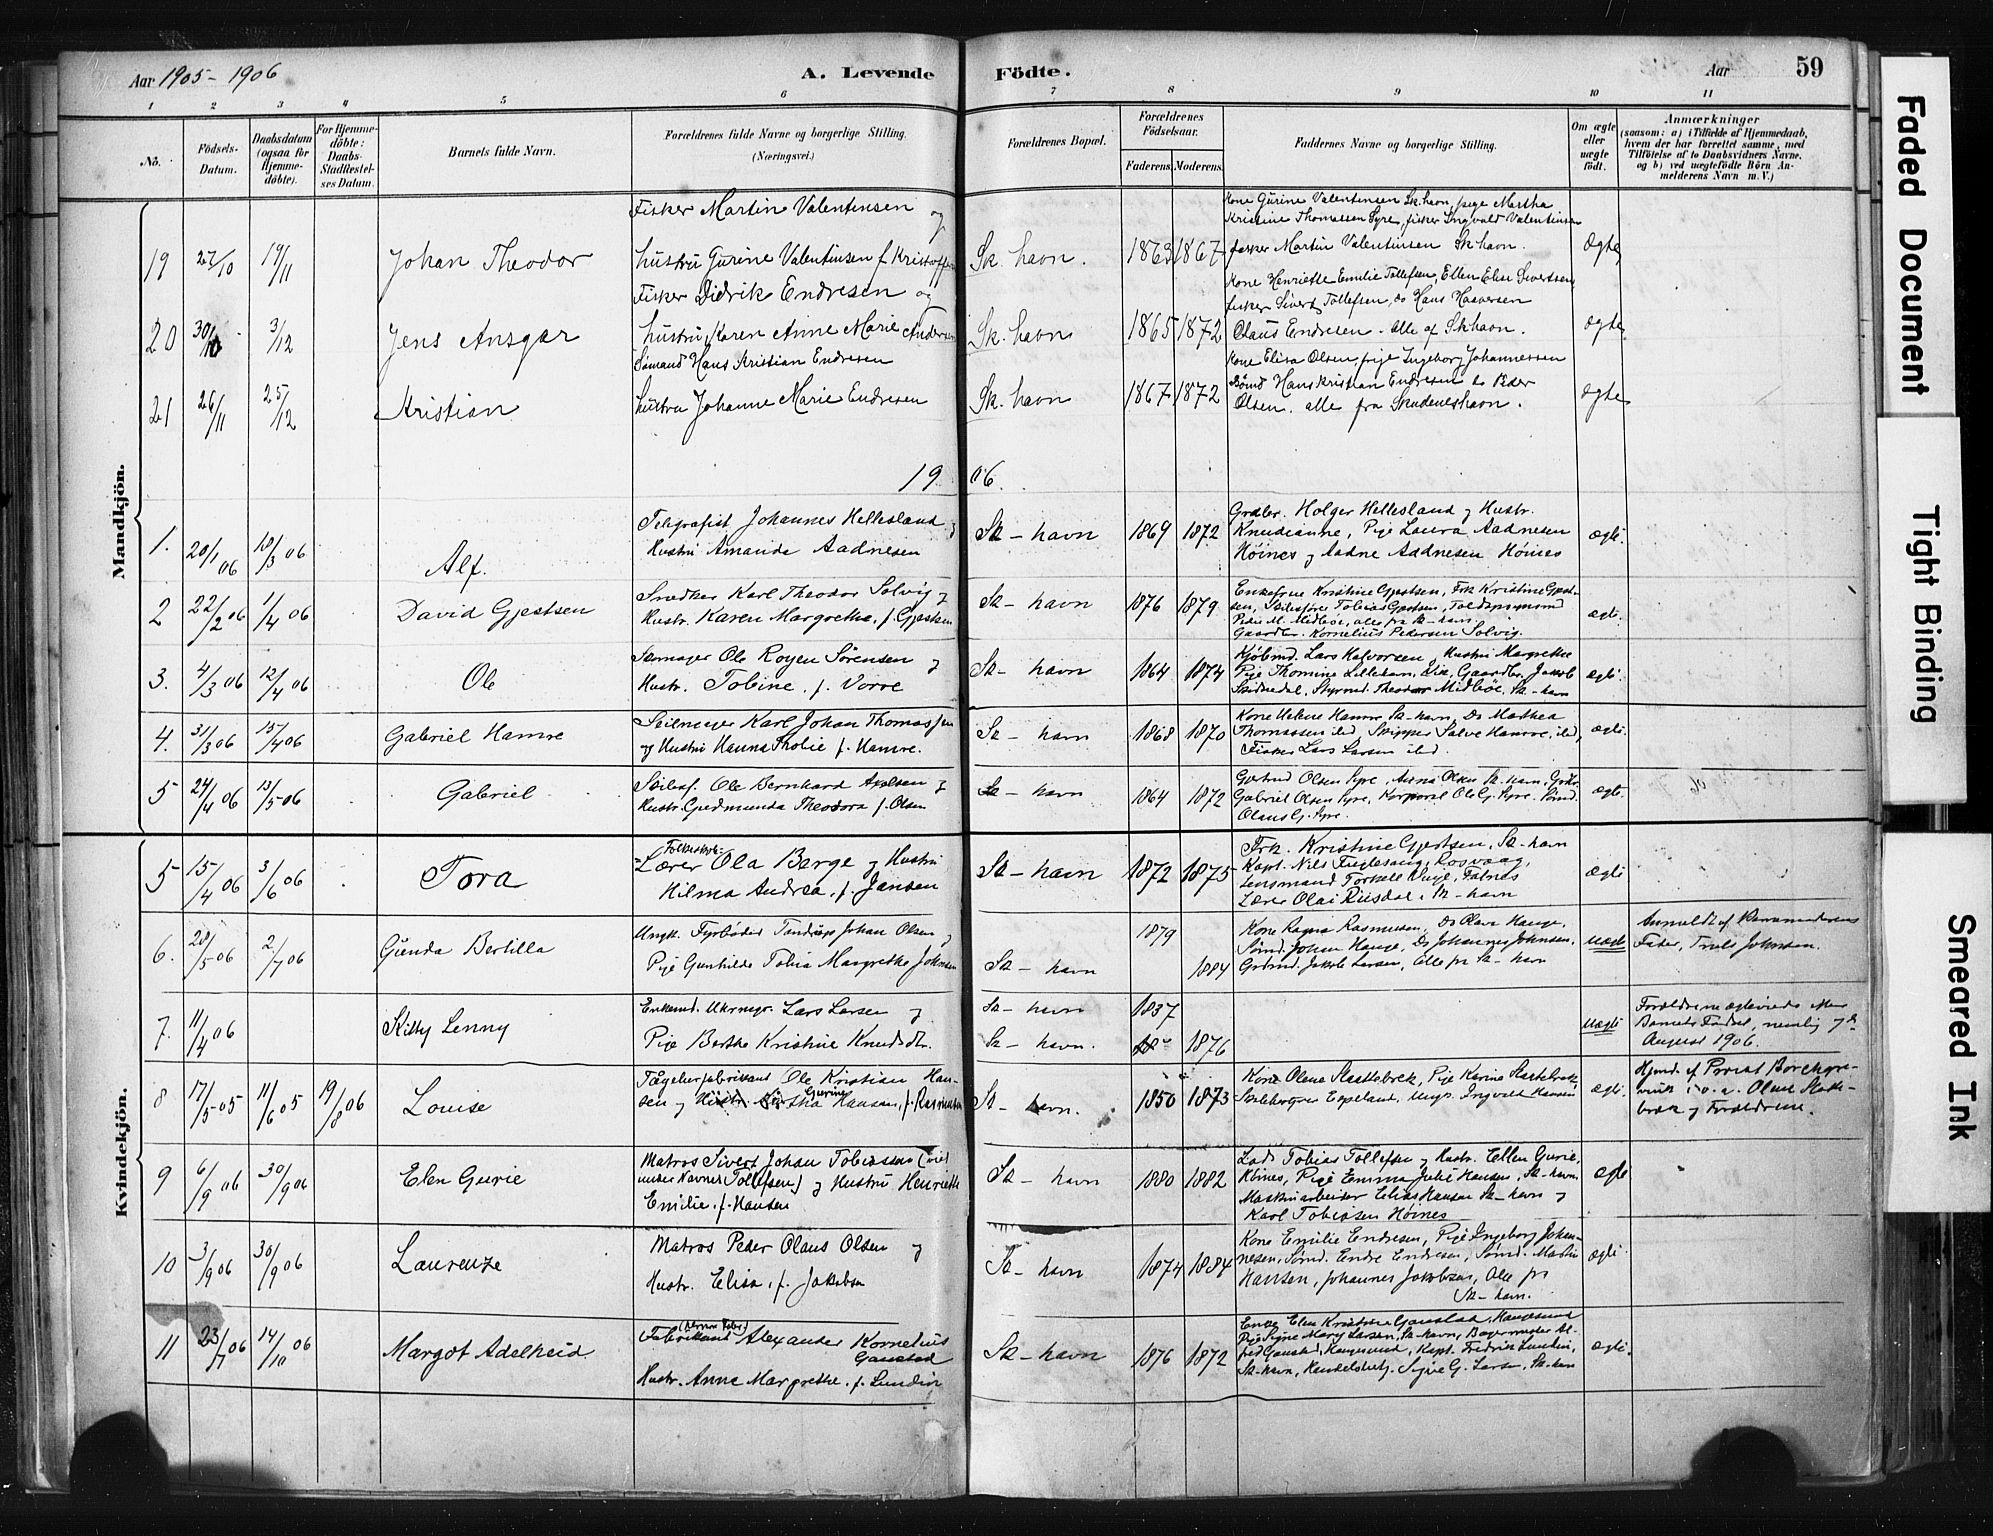 Aar 1905-1906
A. Levende Födte.
Aar
59
1 2 3 4 5 6 7 8 9 10 11
No.
Födsels-Datum.
Daabsdatum (ogsaa for Hjemme-döbte).
For Hjemme-döbte: Daabs-Stadfæstel-ses Datum.
Barnets fulde Navn.
Forældrenes fulde Navne og borgerlige Stilling.
(Næringsvei.)
Forældrenes Bopæl.
Forældrenes Födselsaar.
Faderens. Moderens.
Faddernes Navne og borgerlige Stilling.
Om ægte eller uægte födt.
Anmærkninger
(saasom: a) i Tilfælde af Hjemmedaab, hvem der har forrettet samme, med Tilföielse af to Daabsvidners Navne, og b) ved uægtefödte Börn An-melderens Navn m. V.)
Mandkjön.
19 27/10 19/11 Johan Theodor
Fisker Martin Valentinsen og
hustru Gurine Valentinsen f. Kristoffersen
Sk. havn. 1863 1867
Kone Gurine Valentinsen Sk.havn, pige Martha
Kristine Thomassen Syre, fisker Ingvald Valentinsen
fisker Martin Valentinsen Sk havn.
Ægte
20 30/10 3/12 Jens Ansgar
Fisker Didrik Endresen og
hustru Karen Anne Marie Andersen
Sk. havn 1865 1872
Kone Henriette Emilie Tollefsen, Ellen Elise Sivertsen
fisker Sivert Tollefsen, do Hans Hansen
Olaus Endresen - alle af Skhavn.
ægte
21 26/11 25/12 Kristian
Sömand Hans Kristian Endresen
hustru Johanne Marie Endresen
Sk. havn 1867 1872
Kone Elisa Olsen, pige Ingeborg Johannessen
Sömd Hans Kristian Endresen do Peder
Olsen. alle fra Skudeneshavn.
ægte
1906.
1. 20/1 06 18/3 06 Alf.
Telegrafist Johannes Hellesland og
Hustru Amanda Aadnesen
Sk-havn 1869 1872
Grdbr. Holger Hellesland og Hustr.
Knudianne, Pige Laura Aadnesen
Höines og Aadne Aadnesen Höines
ægte.
2 22/2 06 1/4 06 David Gjertsen
Snedker Karl Theodor Solvig og
Hustr. Karen Margrethe, f. Gjertsen
Sk-havn 1876 1879
Enkefrue Kristine Gjertsen, Frk Kristine Gjert-
sen, Skibsförer Tobias Gjertsen, Toldopsynsmd
Peder M. Midböe, alle fra Sk-havn
Gaardbr. Kornelius Pedersen Solvig.
ægte.
3. 4/3 06 12/4 06 Ole
Skomager Ole Rogen Sörensen og
Hustr. Tobine, f. Vorre
Sk-havn 1864 1874
Kjöbmd. Lars Halvorsen, Hustru Margrethe
Pige Thomine Lillehavn, Gaardbr. Jakob
Skidnedal, Styrmd. Theodor Midböe, Sk-havn
ægte.
4. 31/3 06 15/4 06 Gabriel Hamre
Seilmager Karl Johan Thomassen
og Hustru Hanna Tholie f. Hamre.
Sk-havn 1868 1870
Kone Helene Hamre Sk-havn, Do Mathea
Thomassen ibd, Skipper Salve Hamre, ibd,
Fisker Lars Larsen ibd.
ægte.
5 24/4 06 13/5 06 Gabriel
Skibsf. Ole Bernhard Axelsen og
Hustr. Gudmunda Theodora f. Olsen
Sk-havn 1864 1872
Gjertrud Olsen Syre, Anna Olsen Sk-havn,
Gabriel Olsen Syre, Korporal Ole G. Syre. Sömd.
Olaus G. Syre.
ægte.
Kvindekjön.
5 15/4 06 3/6 06 Tora
Folkeskole-
Lærer Ola Berge og Hustru
Hilma Andrea, f. Jansen
Sk-havn 1872 1875
Frk. Kristine Gjertsen, Sk-havn
Kapt. Nils Fuglesang, Kosvaag,
Lensmand Torkell Vinje, Falnes
Lærer Olai Riisdal, Sk-havn
ægte
6. 28/5 06 2/7 06 Gunda Bertilla
Ungk. Fyrböder Tandrup Johan Olsen og
Pige Gunhilde Tobia Margrethe Johnsen
Sk-havn 1879 1884
Kone Ragna Rasmussen, Do Olava Hauge,
Sömd. Johan Hauge, Do Johannes Johnsen,
Grdmd. Jakob Larsen, Alle fra Sk-havn
uægte
Anmeldt af Barnemoderens
Fader, Truls Johnsen.
7. 11/4 06 Kitty Lenny
Enkemd. Uhrmgr. Lars Larsen og
Pige Berthe Kristine Knudsdtr.
Sk-havn 1837
Sk-havn. 1876
uægte
Forældrene ægteviede efter
Barnets Födsel, nemlig 7de
August 1906.
8 17/5 05 11/6 05 19/8 06 Louise
Fögeherfabrikant Ole Kristian Han-
sen og Hustr. Gurine Hansen, f. Rasmussen
Sk-havn. 1850 1873
Kone Olena Stakkebrek, Pige Karina Stakkebrek,
Espeland, Ungk. Ingvald Hansen
ægte.
Hjemd. af Provst Borchgre-
vink i O. a. Olene Stakke-
brek og Forældrene.
9 6/9 06 30/9 06 Elen Gurie
Matros Sivert Johan Tobiassen (viet
under Navnet Tollefsen) og Hustru Henriette
Emilie, f. Hansen
Sk-havn 1880 1882
Lods Tobias Tollefsen og Hustr. Ellen Gurie,
Höines, Pige Emma Julie Hansen, Sk-havn
Maskinarbeider Elias Hansen Sk-havn og
Karl Tobiasen Höines
ægte
10 3/9 06 30/9 06 Laurenze
Matros Peder Olaus Olsen og
Hustr. Elisa, f. Jakobsen
Sk-havn 1874 1884
Kone Emilie Endresen, Pige Ingeborg Johan-
nesen, Sömd. Endre Endresen, Sömd. Martin
Hansen, Johannes Jakobsen, Alle fra
Sk-havn.
ægte.
11 23/7 06 14/10 06 Margot Adelheid
Fabrikant Alexander Kornelius
Gaustad
Hustr. Anna Margrethe, f. Lundin
Sk-havn 1876 1872
Enke Elen Kristine Gaustad, Haugesund
Pige Signe Mary Larsen, Sk-havn, Bagermester Al-
fred Gaustad, Haugesund, Kapt. Fredrik Lundin,
Sk-havn, Handelsbetj. Sigve G. Larsen, Sk-havn
ægte.
Faded Document
Tight Binding
Smeared Ink